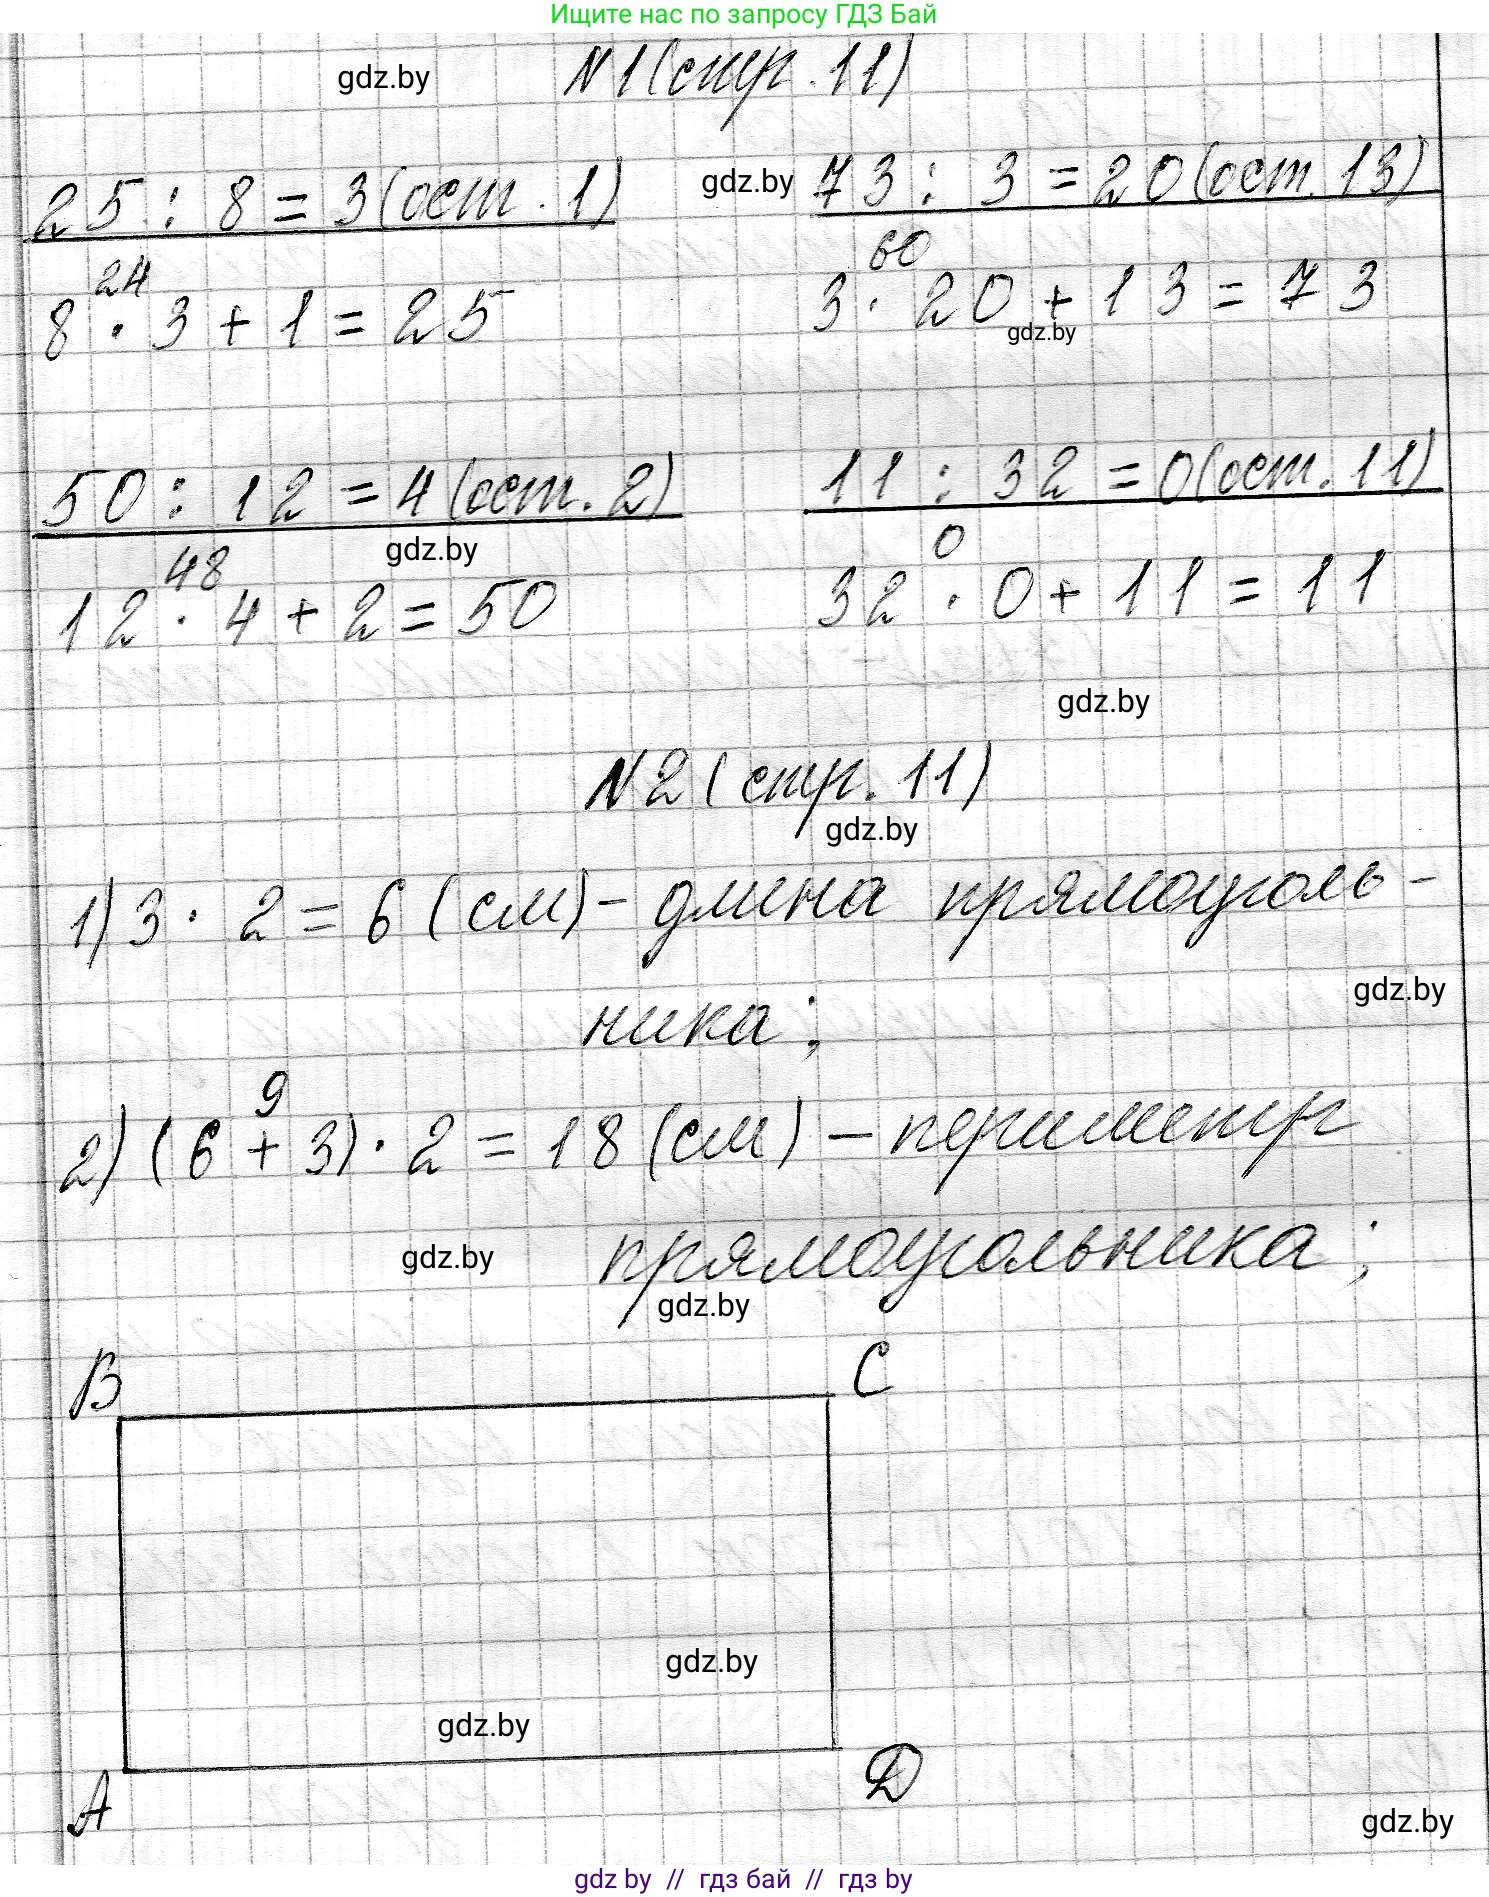 Ищите нас по запросу ГДЗ Бай
gdz.by
N1(стр. 11)
25 : 8 = 3(ост. 1)
gdz.by
73 : 3 = 20(ост. 13)
24
8 · 3 + 1 = 25
60
3 · 20 + 13 = 73
gdz.by
50 : 12 = 4(ост. 2)
11 : 32 = 0(ост. 11)
gdz.by
48
12 · 4 + 2 = 50
0
32 · 0 + 11 = 11
gdz.by
N2(стр. 11)
gdz.by
1) 3 · 2 = 6 (см) - длина прямоуголь-
gdz.by
ника;
9
2) (6 + 3) · 2 = 18 (см) – периметр
gdz.by
прямоугольника;
gdz.by
B C
gdz.by
gdz.by
A D
gdz.by
gdz by // гдз бай // гдз by